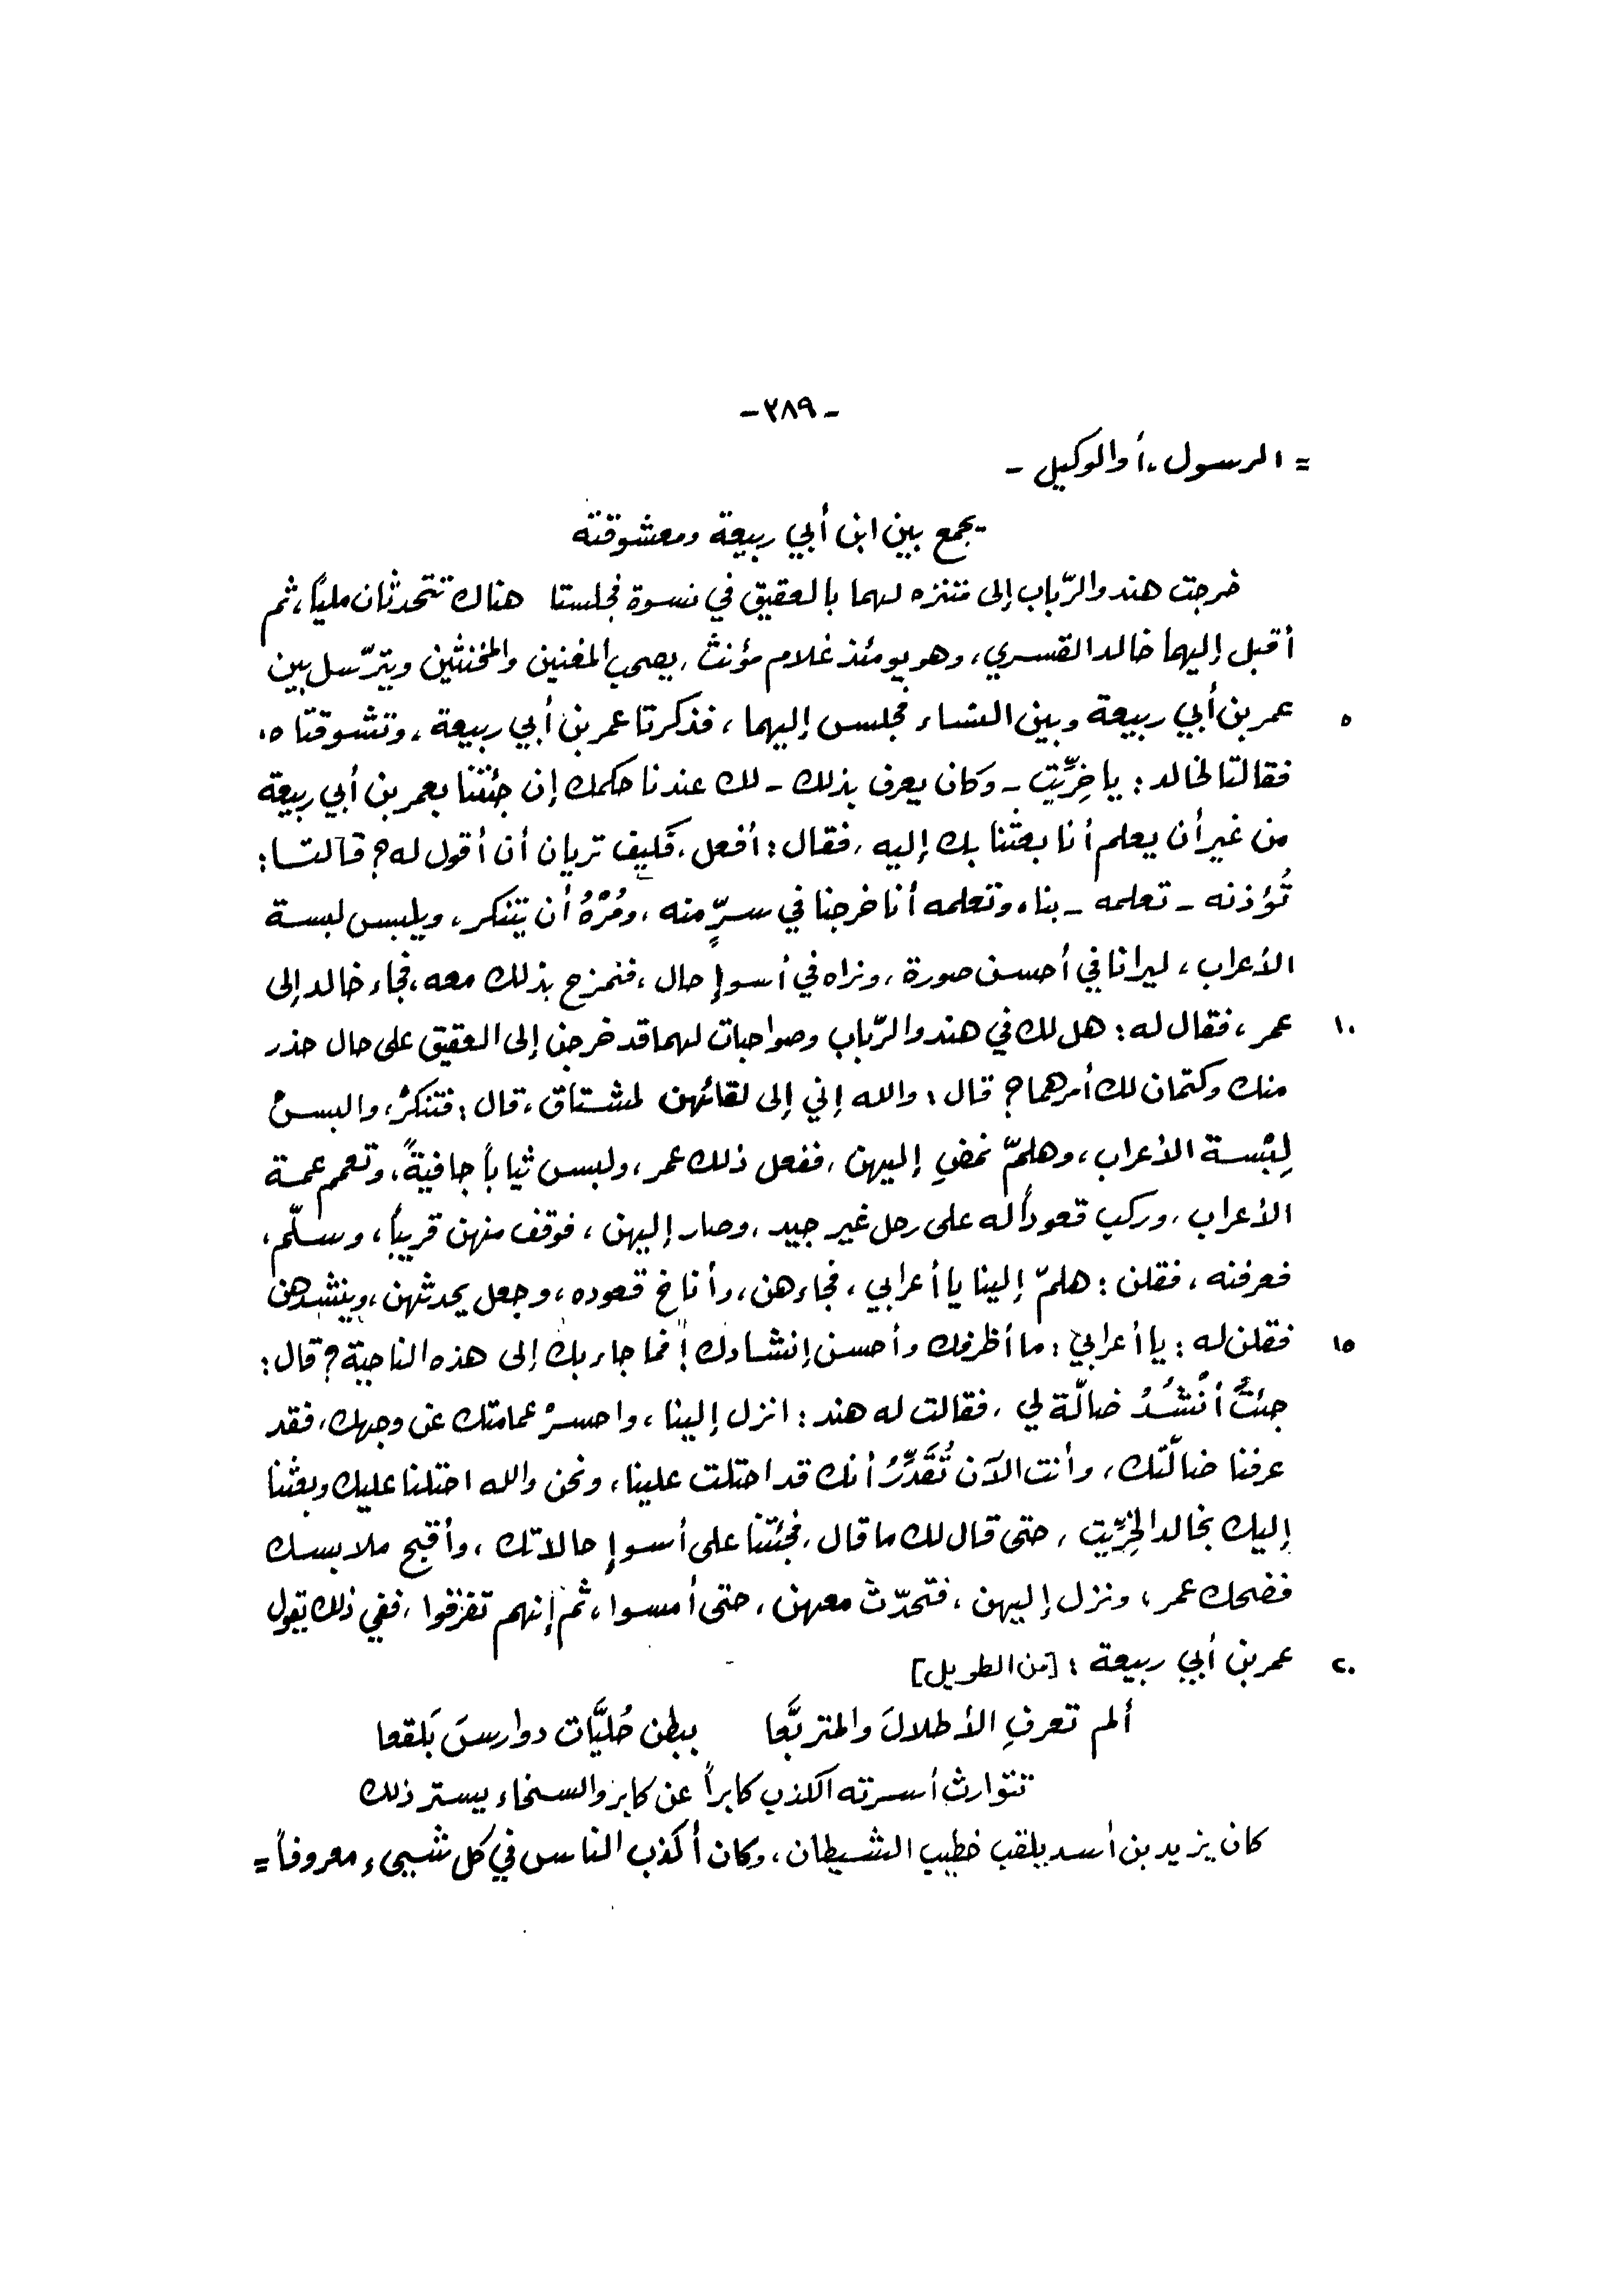 -٢٨٩-
= الرسول، أو الوكيل -
يجمع بين ابن أبي ربيعة ومعشوقته
خرجت هند والرّباب إلى متنزه لهما بالعقيق في نسوة فجلستا هناك تتحدثان ملياً، ثم
أقبل إليهما خالد القسري، وهو يومئذ غلام مؤنث، يصحب المغنين والمخنثين ويترّسل بين
٥ عمر بن أبي ربيعة وبين النساء فجلس إليهما، فذكرتا عمر بن أبي ربيعة، وتشوقتاه،
فقالتا لخالد: يا خِرِّيت - وكان يعرف بذلك - لك عندنا حكمك إن جئتنا بعمر بن أبي ربيعة
من غير أن يعلم أنا بعثنا بك إليه، فقال: أفعل، فكيف تريان أن أقول له؟ قالتا:
تُؤذنه - تعلمه - بنا، وتعلمه أنا خرجنا في سرٍّ منه، ومُرْهُ أن يتنكر، ويلبس لبسة
الأعراب، ليرانا في أحسن صورة، ونراه في أسوإ حال، فنمزح بذلك معه، فجاء خالد إلى
١٠ عمر، فقال له: هل لك في هند والرّباب وصواحبات لهما قد خرجن إلى العقيق على حال حذر
منك وكتمان لك أمرهما؟ قال: والله إني إلى لقائهن لمشتاق، قال: فتنكرْ، والبسْ
لِبْسة الأعراب، وهلمّ نمضِ إليهن، ففعل ذلك عمر، ولبس ثياباً جافيةً، وتعمم عمة
الأعراب، وركب قعوداً له على رحل غير جيد، وصار إليهن، فوقف منهن قريباً، وسلّم،
فعرفنه، فقلن: هلمّ إلينا يا أعرابي، فجاءهن، وأناخ قعوده، وجعل يحدثهن، وينشدهن
١٥ فقلن له: يا أعرابي: ما أظرفك وأحسن إنشادك! فما جاء بك إلى هذه الناحية؟ قال:
جئتُ أنْشُدُ ضالّة لي، فقالت له هند: انزل إلينا، واحسرْ عمامتك عن وجهك، فقد
عرفنا ضالّتك، وأنت الآن تُقَدِّرُ أنك قد احتلت علينا، ونحن والله احتلنا عليك وبعثنا
إليك بخالد الخِرِّيت، حتى قال لك ما قال، فجئتنا على أسوإ حالاتك، وأقبح ملابسك
فضحك عمر، ونزل إليهن، فتحدّث معهن، حتى أمسوا، ثم إنهم تفرقوا، ففي ذلك يقول
٢٠ عمر بن أبي ربيعة: [من الطويل]
ألم تعرفِ الأطلالَ والمتربَّعا ببطن حُليَّات دوارسَ بَلقعا
تتوارث أسرته الكذب كابراً عن كابر والسخاء يستر ذلك
كان يزيد بن أسد يلقب خطيب الشيطان، وكان أكذب الناس في كل شيىء معروفاً =